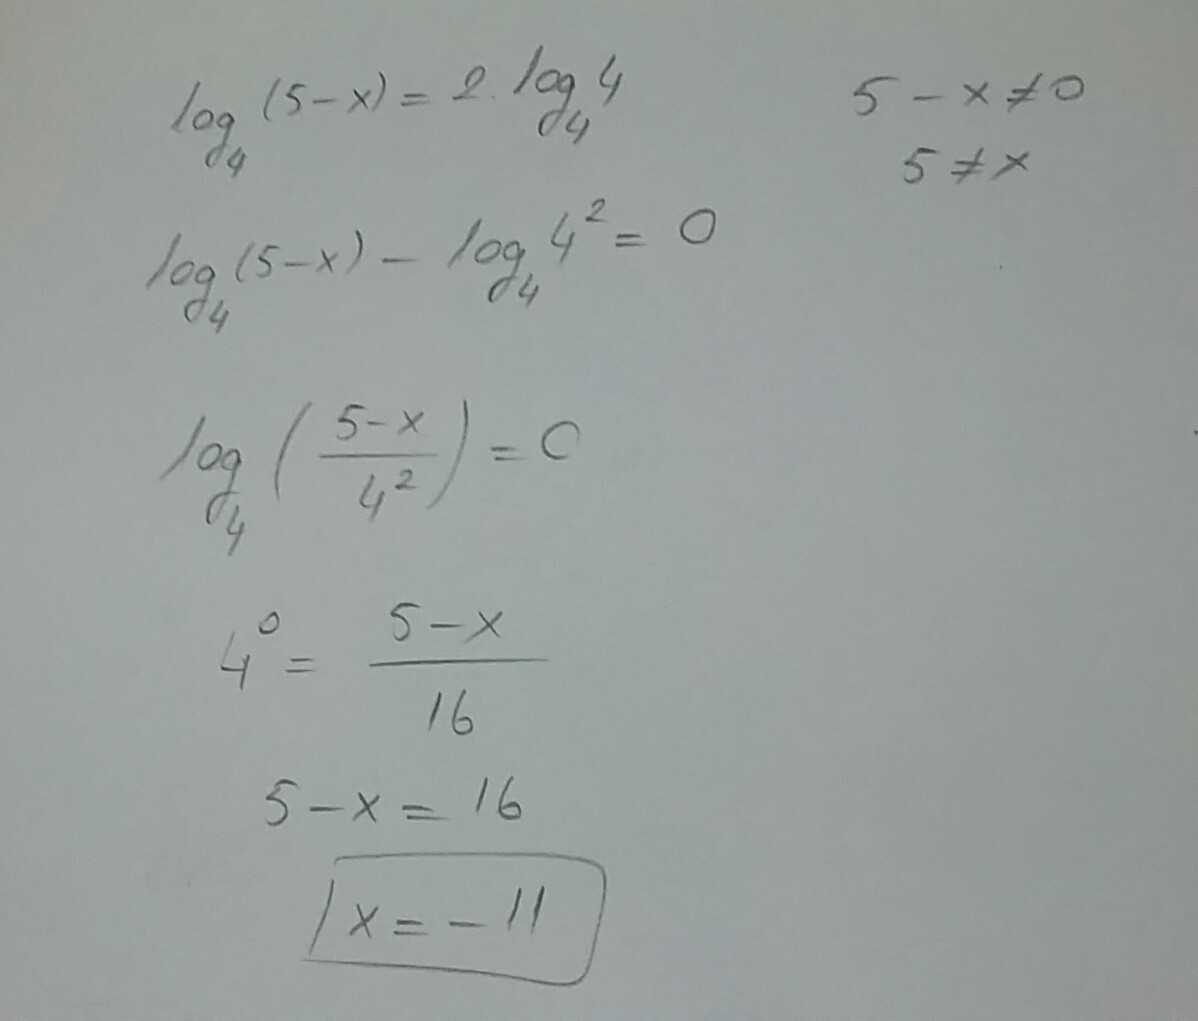 log₄(5-x) = 2. log₄4
5 - x ≠ 0
5 ≠ x
log₄(5-x) - log₄4² = 0
log₄((5-x)/4²) = 0
4⁰ = (5-x)/16
5-x = 16
x = -11